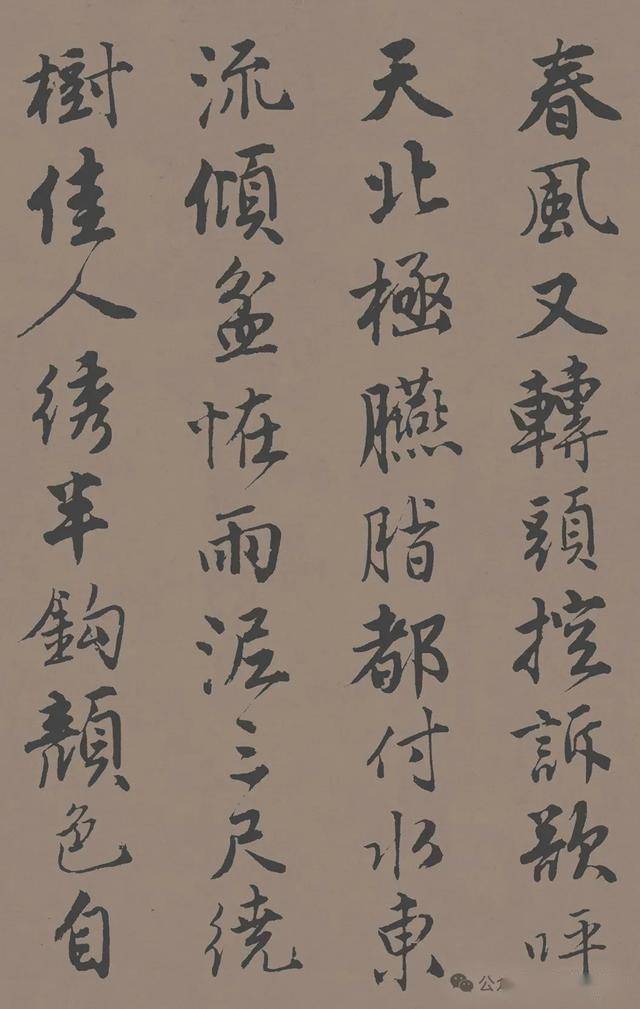 春風又轉頭控訴欲呼
天北極臙脂都付水東
流傾盆恠雨泥三尺繞
樹佳人绣半鈎顏色自
公